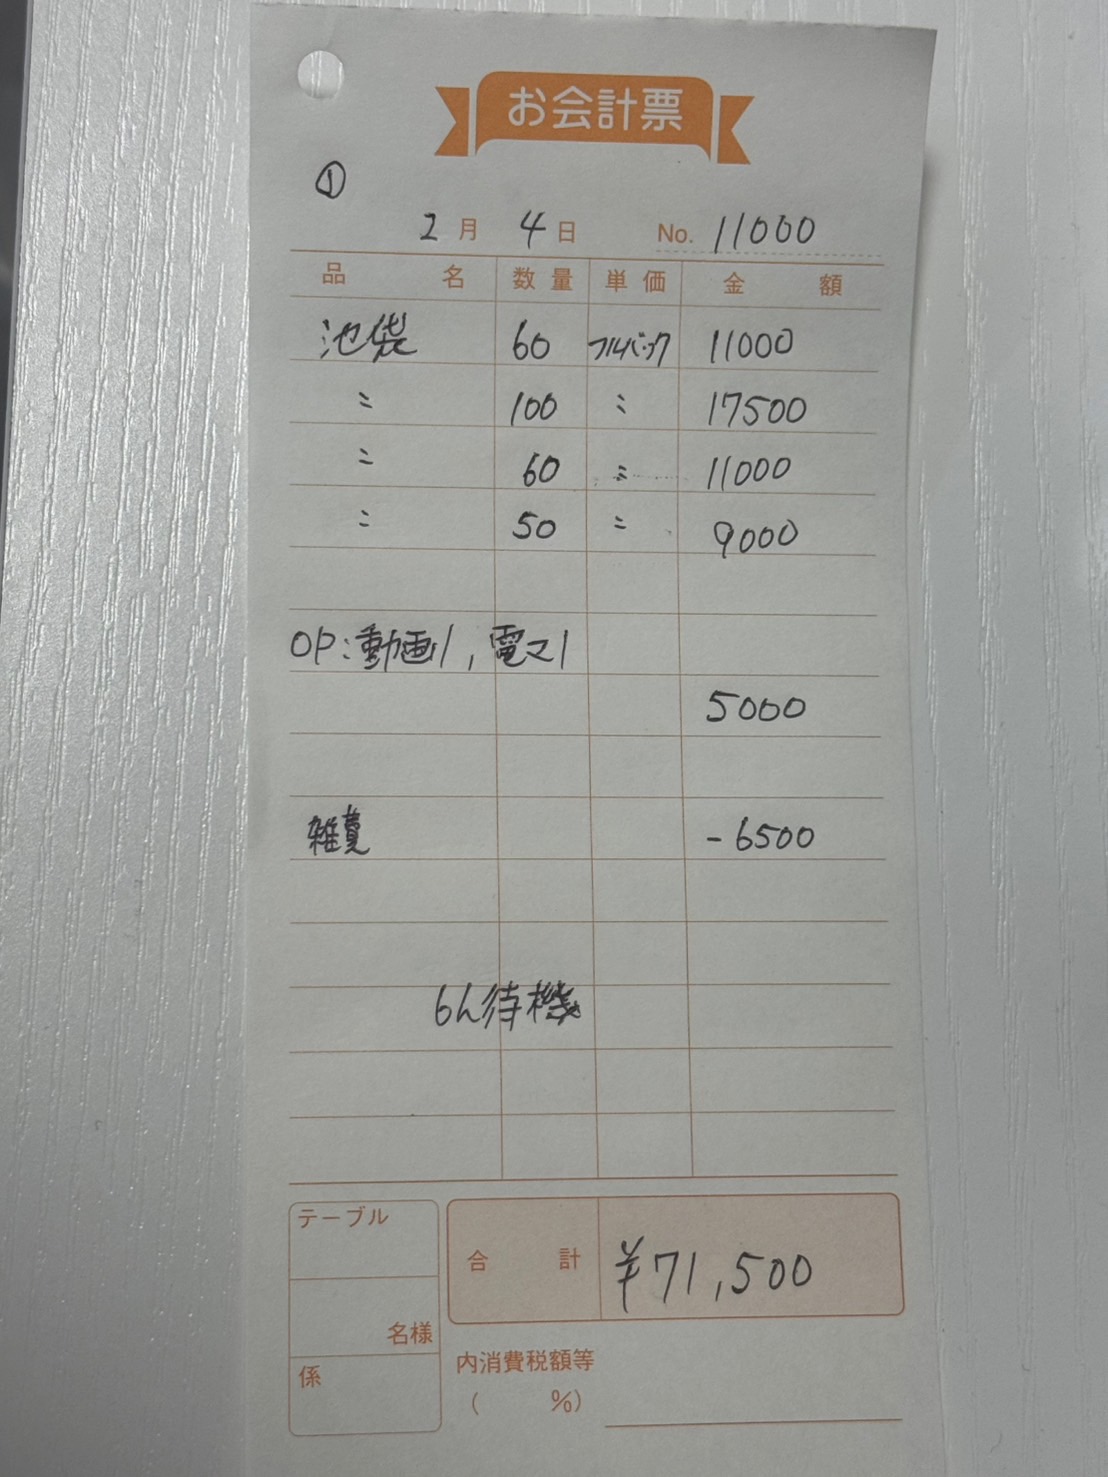 お会計票
①
2月 4日 No. 11000
品名 数量 単価 金額
池袋 60 フルバック 11000
〃 100 〃 17500
〃 60 〃 11000
〃 50 〃 9000
OP:動画1,電マ1
5000
雑費 -6500
6h待機
テーブル
名様
係
合計 ¥71,500
内消費税額等
( %)